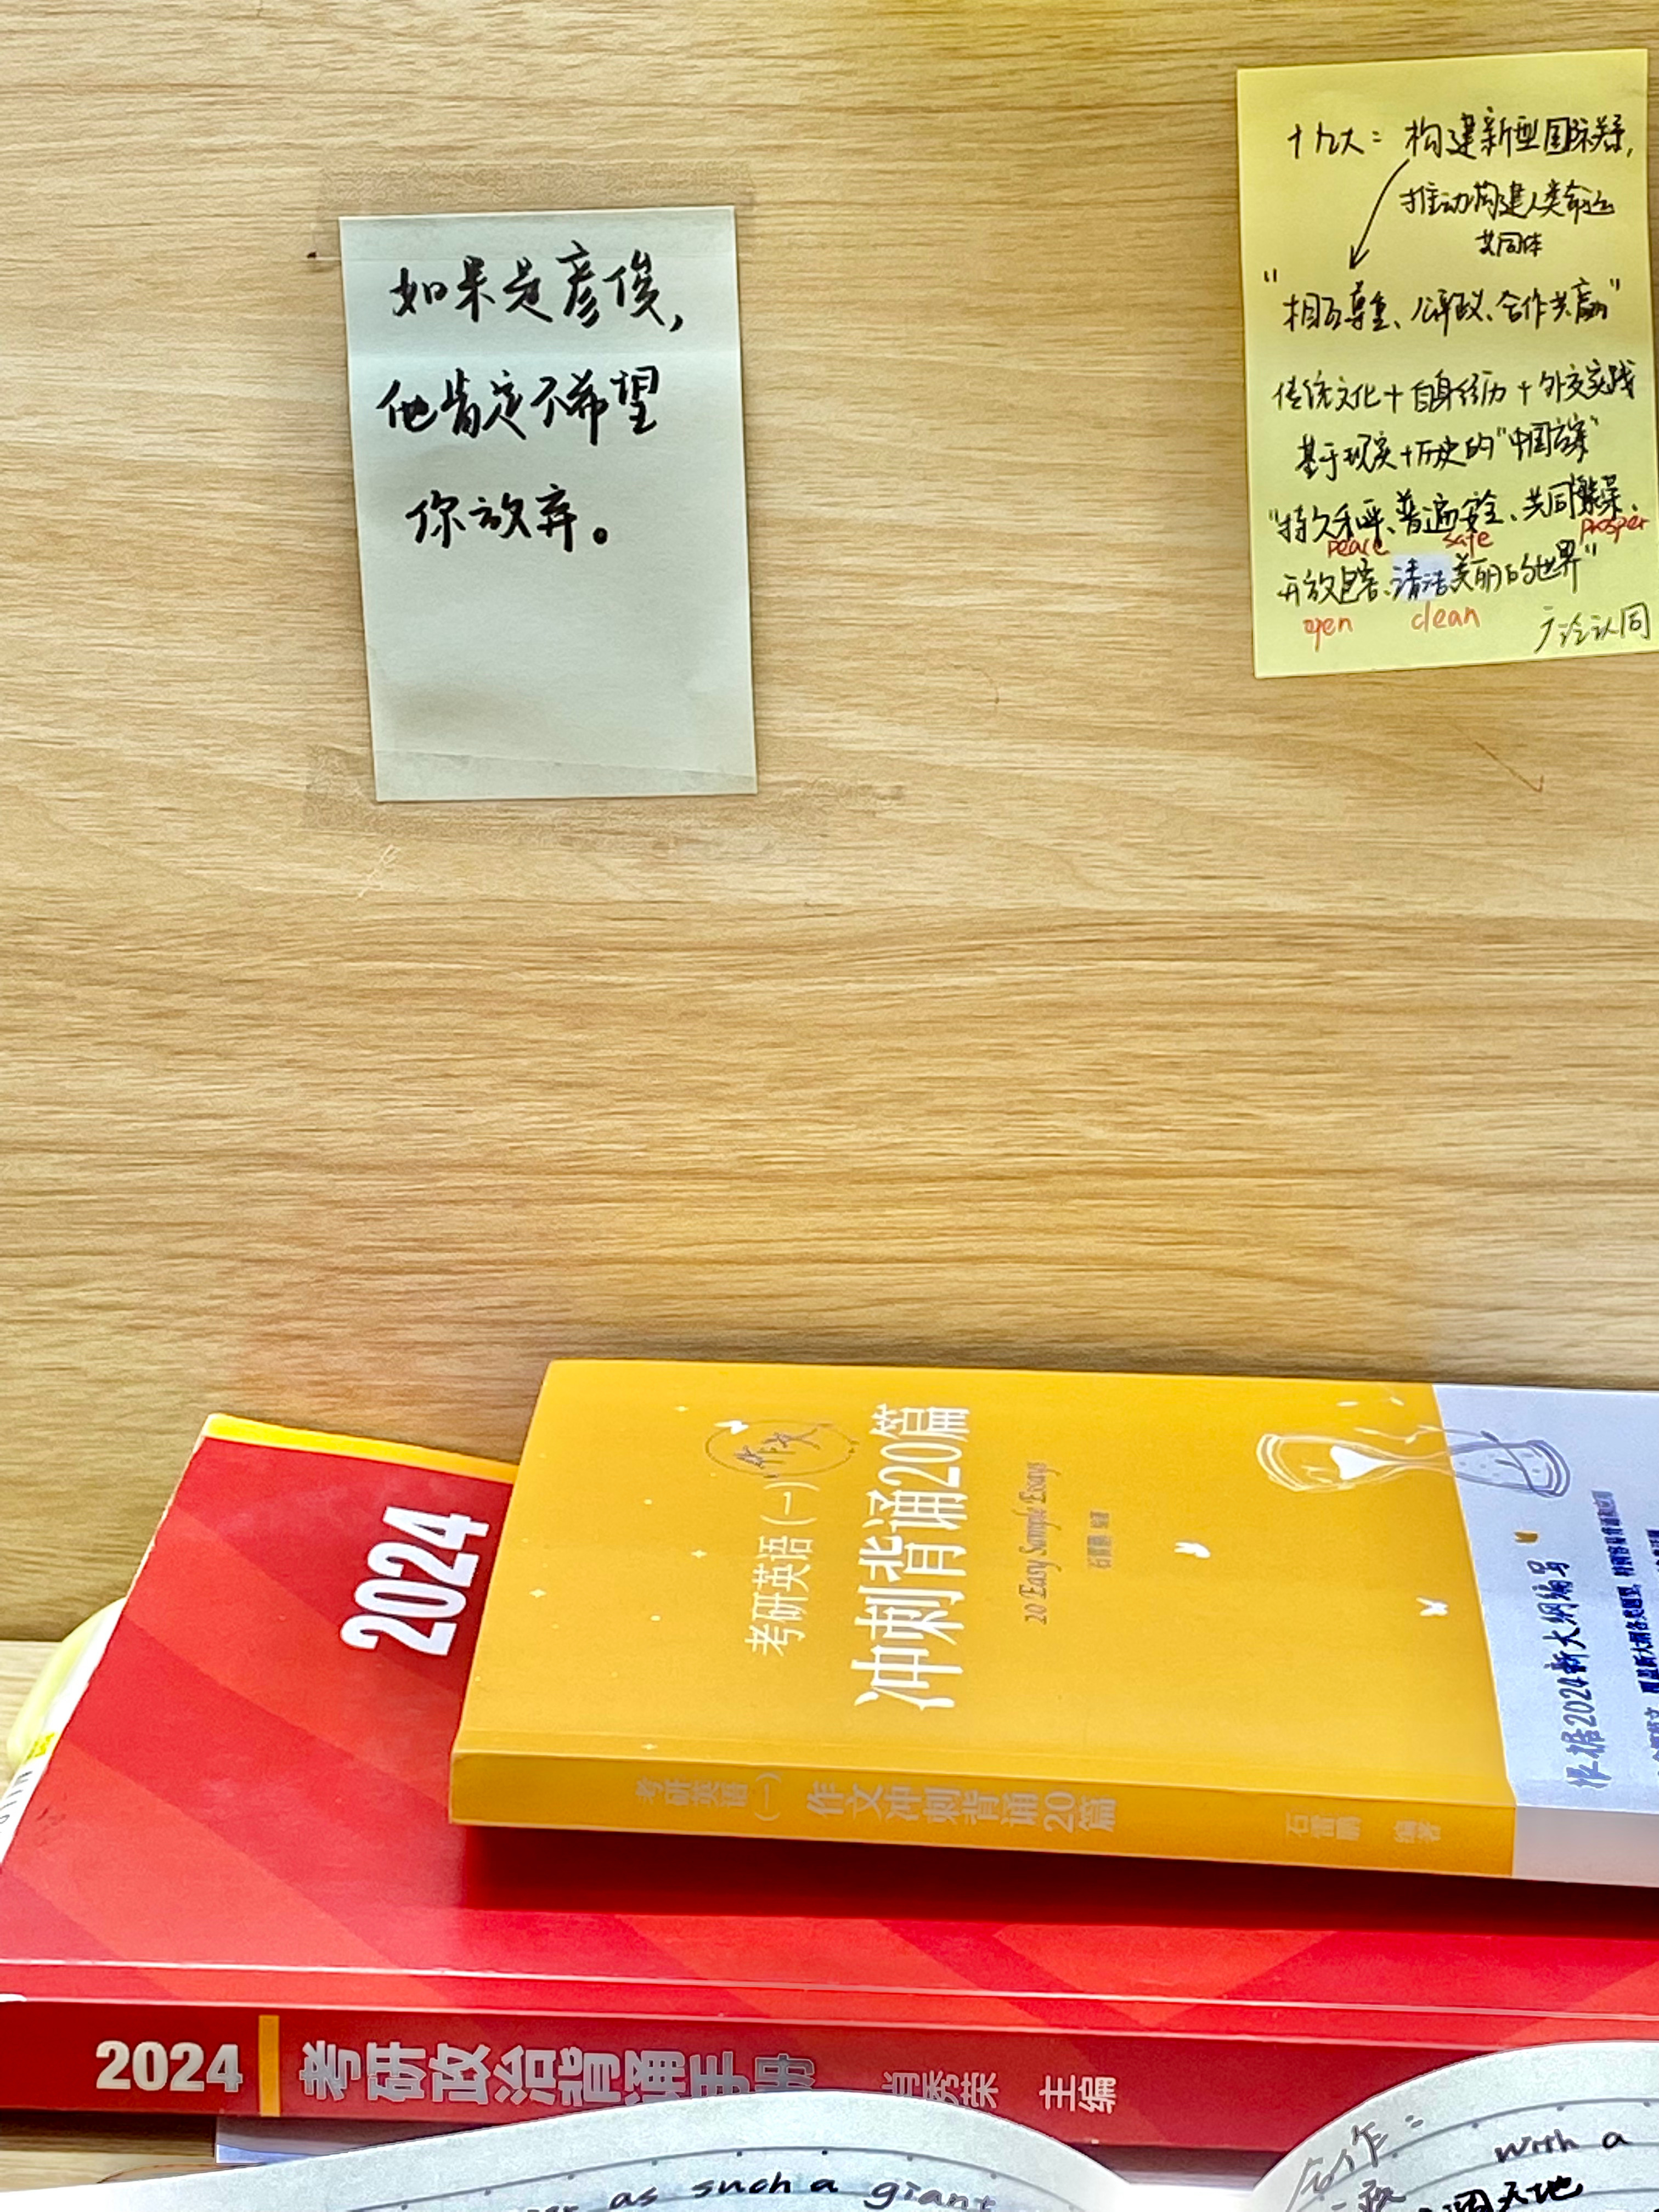 如果是彦俊,
他肯定不希望
你放弃。
十九大：构建新型国际关系,
推动构建人类命运
共同体
"相互尊重、公平正义、合作共赢"
传统文化+自身经历+外交实践
基于现实+历史的"中国方案"
"持久和平、普遍安全、共同繁荣、
peace safe prosper
开放包容、清洁美丽的世界"
open clean
广泛认同
2024
考研英语(一)
作文
冲刺背诵20篇
20 Easy Sample Essays
石雷鹏 编著
根据2024新大纲编写
考研英语(一) 作文冲刺背诵20篇 石雷鹏 编著
2024 考研政治背诵手册 肖秀荣 主编
as such a giant
合作：
with a